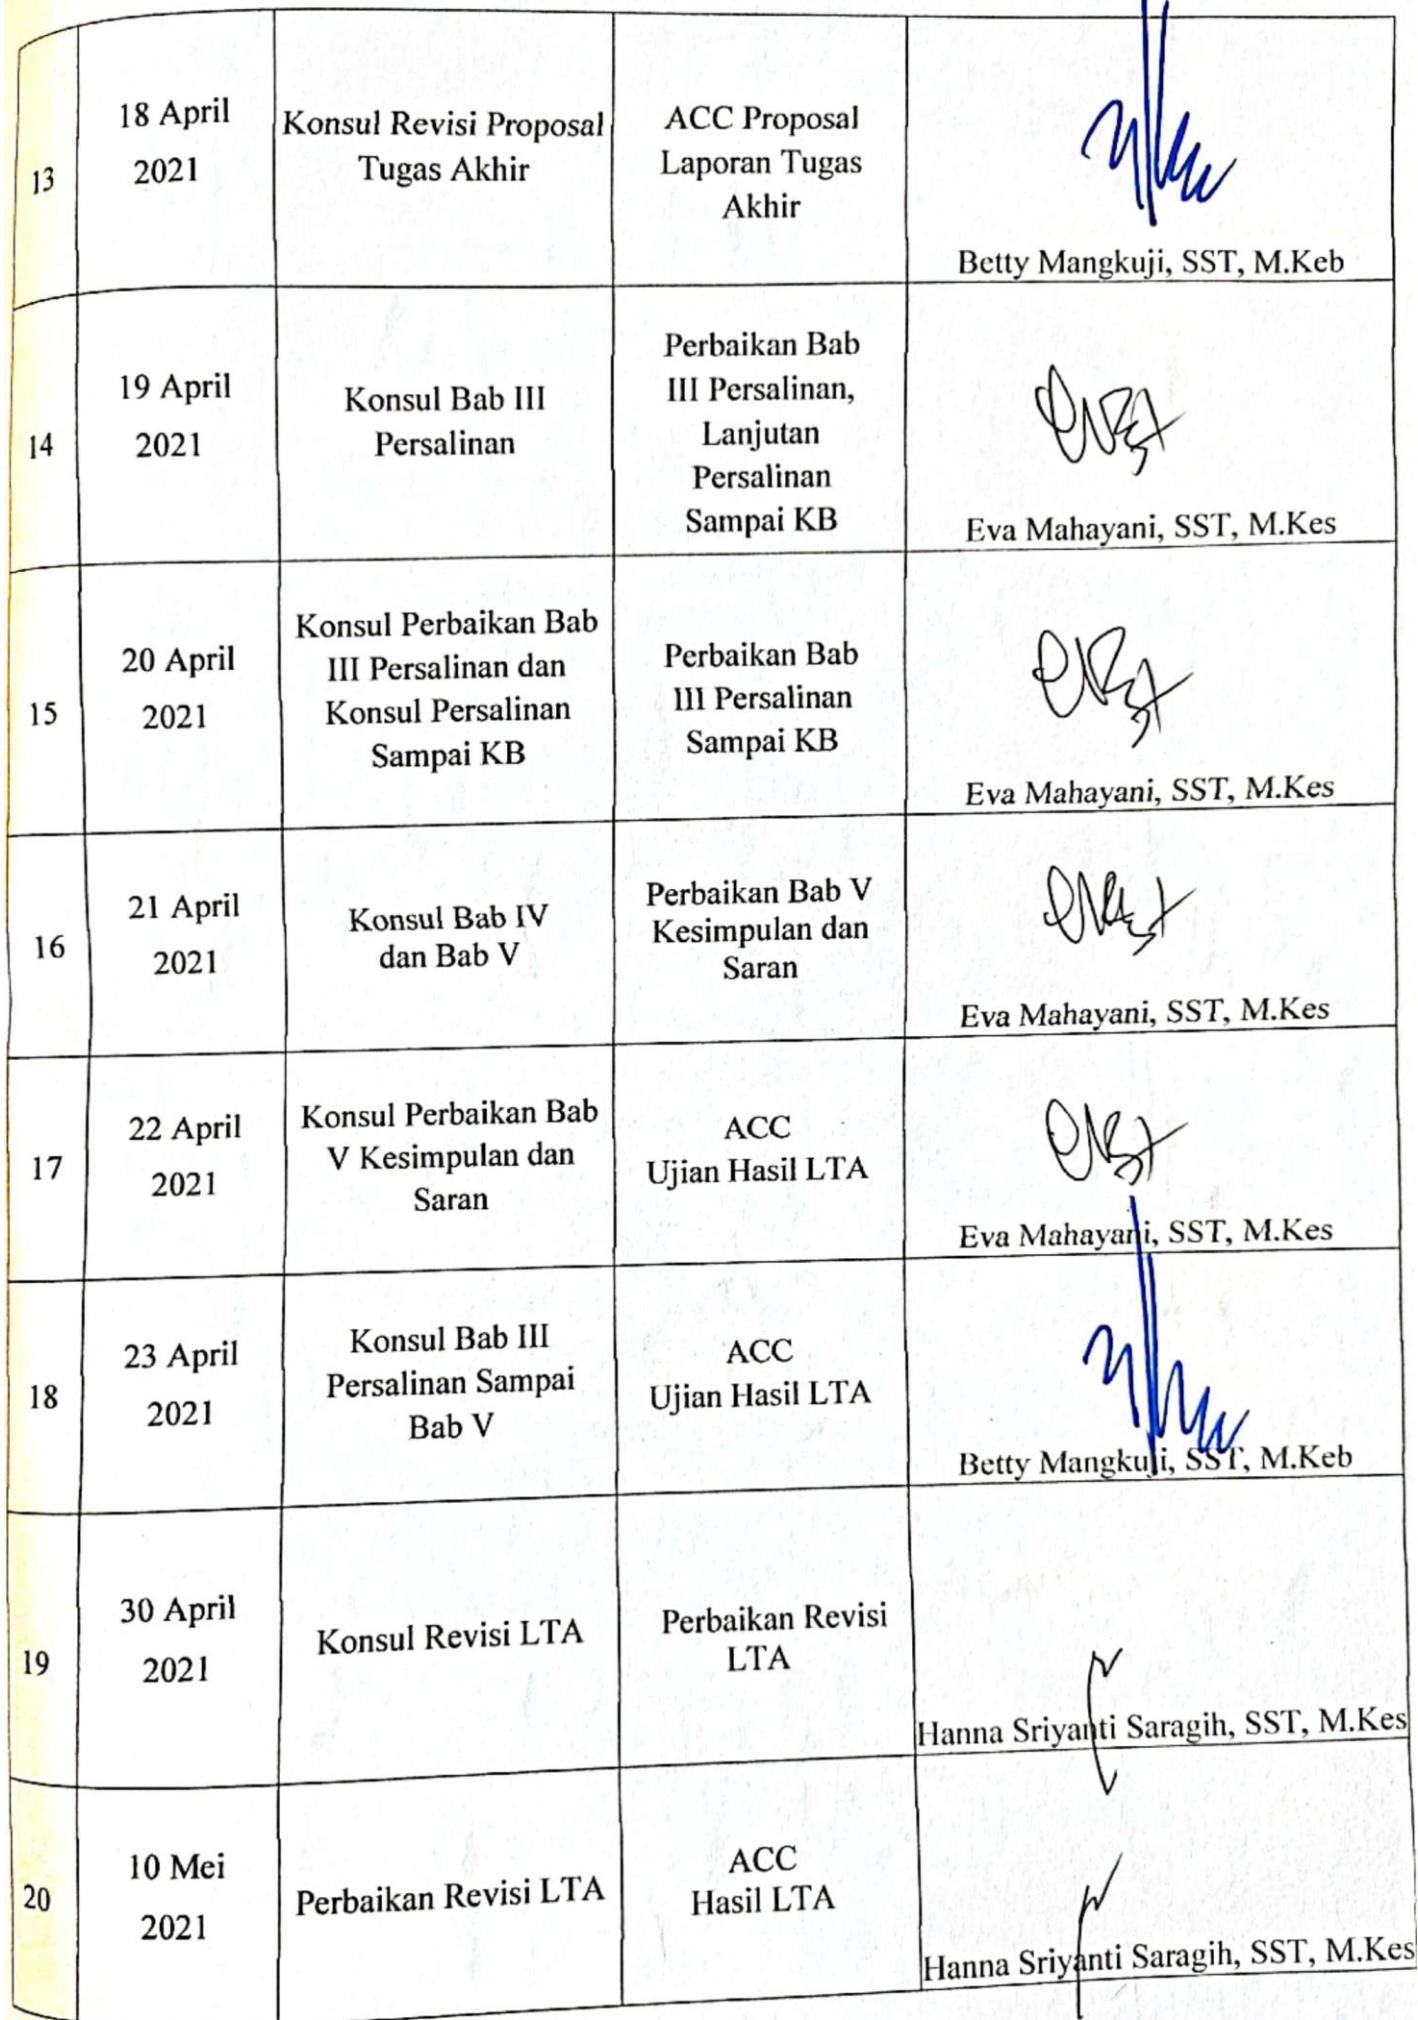 13
18 April
2021
Konsul Revisi Proposal
Tugas Akhir
ACC Proposal
Laporan Tugas
Akhir
Betty Mangkuji, SST, M.Keb
14
19 April
2021
Konsul Bab III
Persalinan
Perbaikan Bab
III Persalinan,
Lanjutan
Persalinan
Sampai KB
Eva Mahayani, SST, M.Kes
15
20 April
2021
Konsul Perbaikan Bab
III Persalinan dan
Konsul Persalinan
Sampai KB
Perbaikan Bab
III Persalinan
Sampai KB
Eva Mahayani, SST, M.Kes
16
21 April
2021
Konsul Bab IV
dan Bab V
Perbaikan Bab V
Kesimpulan dan
Saran
Eva Mahayani, SST, M.Kes
17
22 April
2021
Konsul Perbaikan Bab
V Kesimpulan dan
Saran
ACC
Ujian Hasil LTA
Eva Mahayani, SST, M.Kes
18
23 April
2021
Konsul Bab III
Persalinan Sampai
Bab V
ACC
Ujian Hasil LTA
Betty Mangkuji, SST, M.Keb
19
30 April
2021
Konsul Revisi LTA
Perbaikan Revisi
LTA
Hanna Sriyanti Saragih, SST, M.Kes
20
10 Mei
2021
Perbaikan Revisi LTA
ACC
Hasil LTA
Hanna Sriyanti Saragih, SST, M.Kes